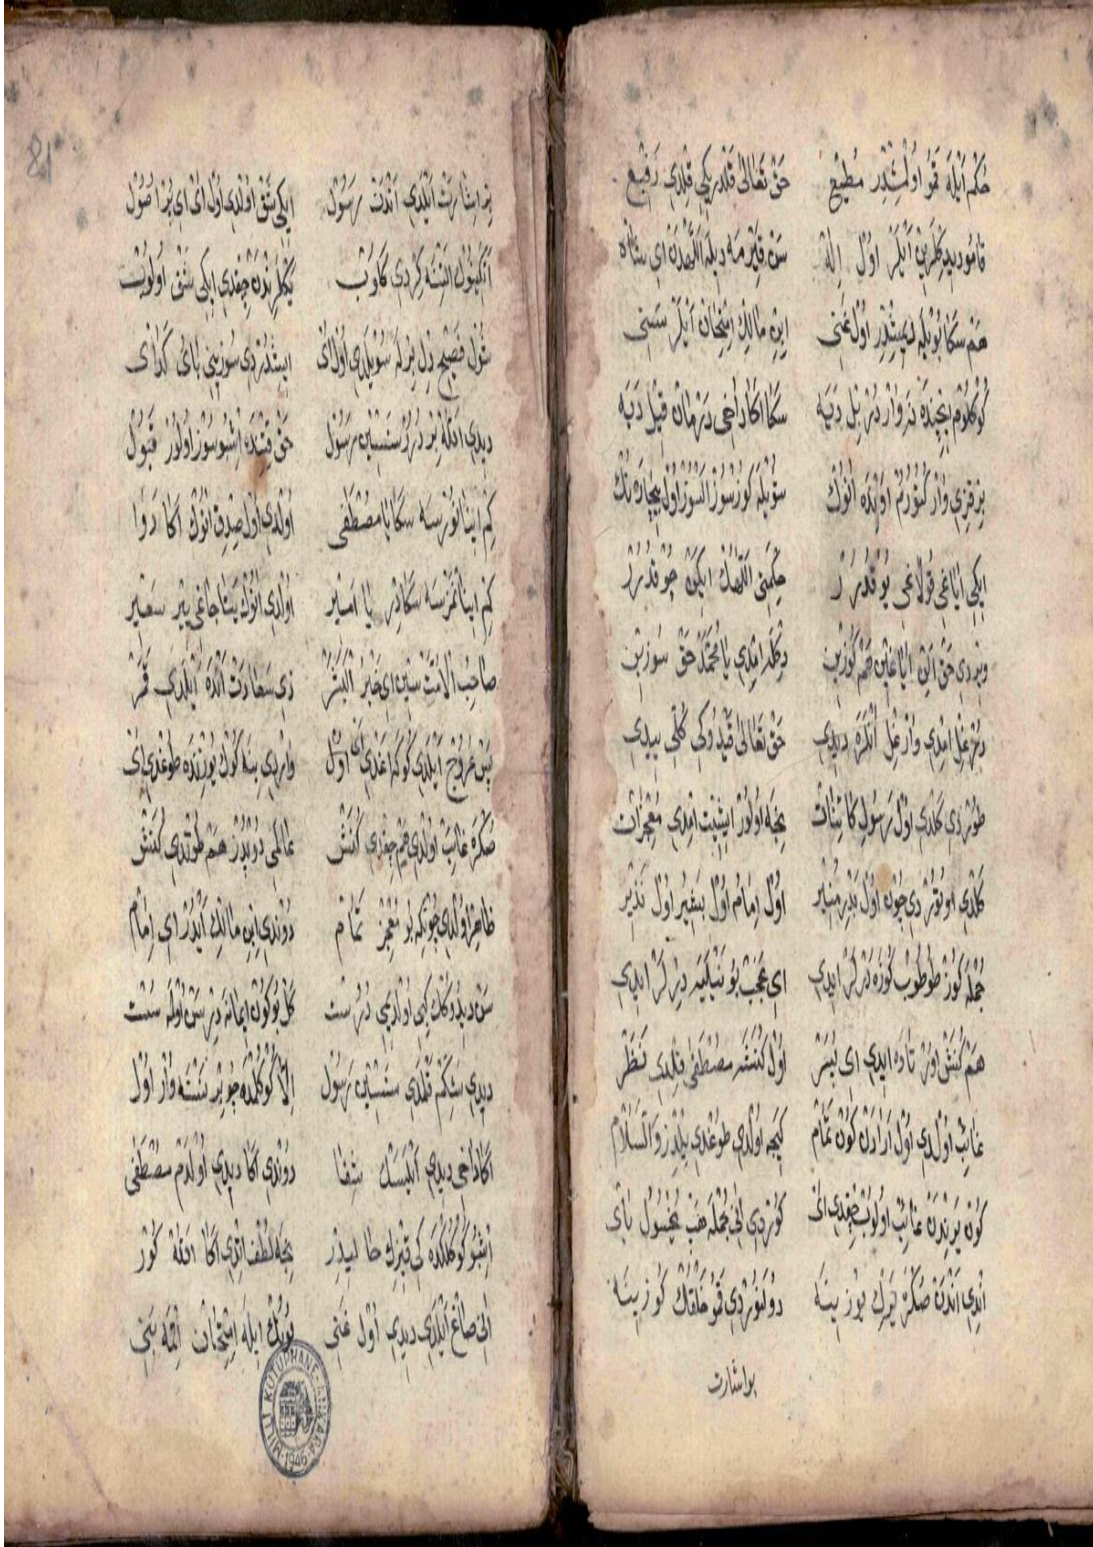 حكم ايله قمو اولمشدر مطيع حق تعالى قدريكى قلدى رفيع
قامو ديدكلرين ايلر اول اله سن قيرمه ديله اللهدن اى شاه
هم سكا بويله ديمشدر اول غنى ابن مالك امتحان ايلر سنى
كوكلوم ايچنده نه واردر بل ديه سكا اكا داخى درمان قيل ديه
بر قزى وار كتورم اوكده انوك سويله كوزسوز السوز اول بيچاره نك
ايكى اياغى قولاغى يوقدرر حكمتى اللهك ايكن چوقدرر
ويردى حق الين اياغين هم كوزين دكله امدى يا محمد حق سوزين
درغل امدى وارغل انكره ديدى حق تعالى قيدوكى كلى ييدى
طوردى كلدى اول رسول كائنات نجه اولور ايشيت امدى معجزات
كلدى اوتوردى چون اول بدر منير اول امام اول بشير اول نذير
جمله كوز طوطوب كوزه درلر ايدى اى عجب بو نيليه ديرلر ايدى
هم كنش اورتاده ايدى اى بشر اول كنشه مصطفى قلدى نظر
غائب اولدى اول ارادن كون تمام كيجه اولدى طوغدى يلدز والسلام
كون يرندن غائب اولوب چقدى اى كوردى انى جمله هب يخسول باى
اندى اندن صكره يرك يوزينه دولنوردى قمو خلقك كوزينه
بو اشارت
81
بر اشارت ايلدى اندن رسول ايكى شق اولدى اول اى اى پر اصول
انكينوك ايچنه كردى كلوب يكلريندن چقدى ايكى شق اولوب
شول فصيح دل برله سويلدى اول اى ايشتدردى سوزينى باى كداى
ديدى الله بردر سنسين رسول حق قتنده اشبو سوز اولور قبول
كم اينانورسه سكا يا مصطفى اولدى اول صدق انوك اكا دوا
كم اينانمزسه سكا در يا امير اولدى انوك يتاجاغى يير سعير
صاحب الامت سين اى خير البشر دى سعادت انده ايلدى قمر
پس عروج ايلدى كوكه اغدى اى اول واردى ينه كوك يوزنده طوغدى اى
صكره غائب اولدى هم چقدى كنش عالمى دوپدز هم طوتدى كنش
ظاهر اولدى چونكه بو معجز تمام دوندى ابن مالك ايدر اى امام
سن ديدوكك كبى اولدى درست كل بوكون ايمانه ديرسن اوله سست
ديدى شكم قلمدى سنسين رسول الا كوكلمده چو بر نسنه وار اول
اكا داخى ديدى ايلسك شفا دوندى اكا ديدى اولدم مصطفى
اشبو كوكلكده كى قيزك حاليدر نجه لطف اتدى اكا الله كور
انى صاغ ايلدى ديدى اول غنى بونك ايله امتحان اتمه بنى
MİLLİ KÜTÜPHANE - ANKARA 1946